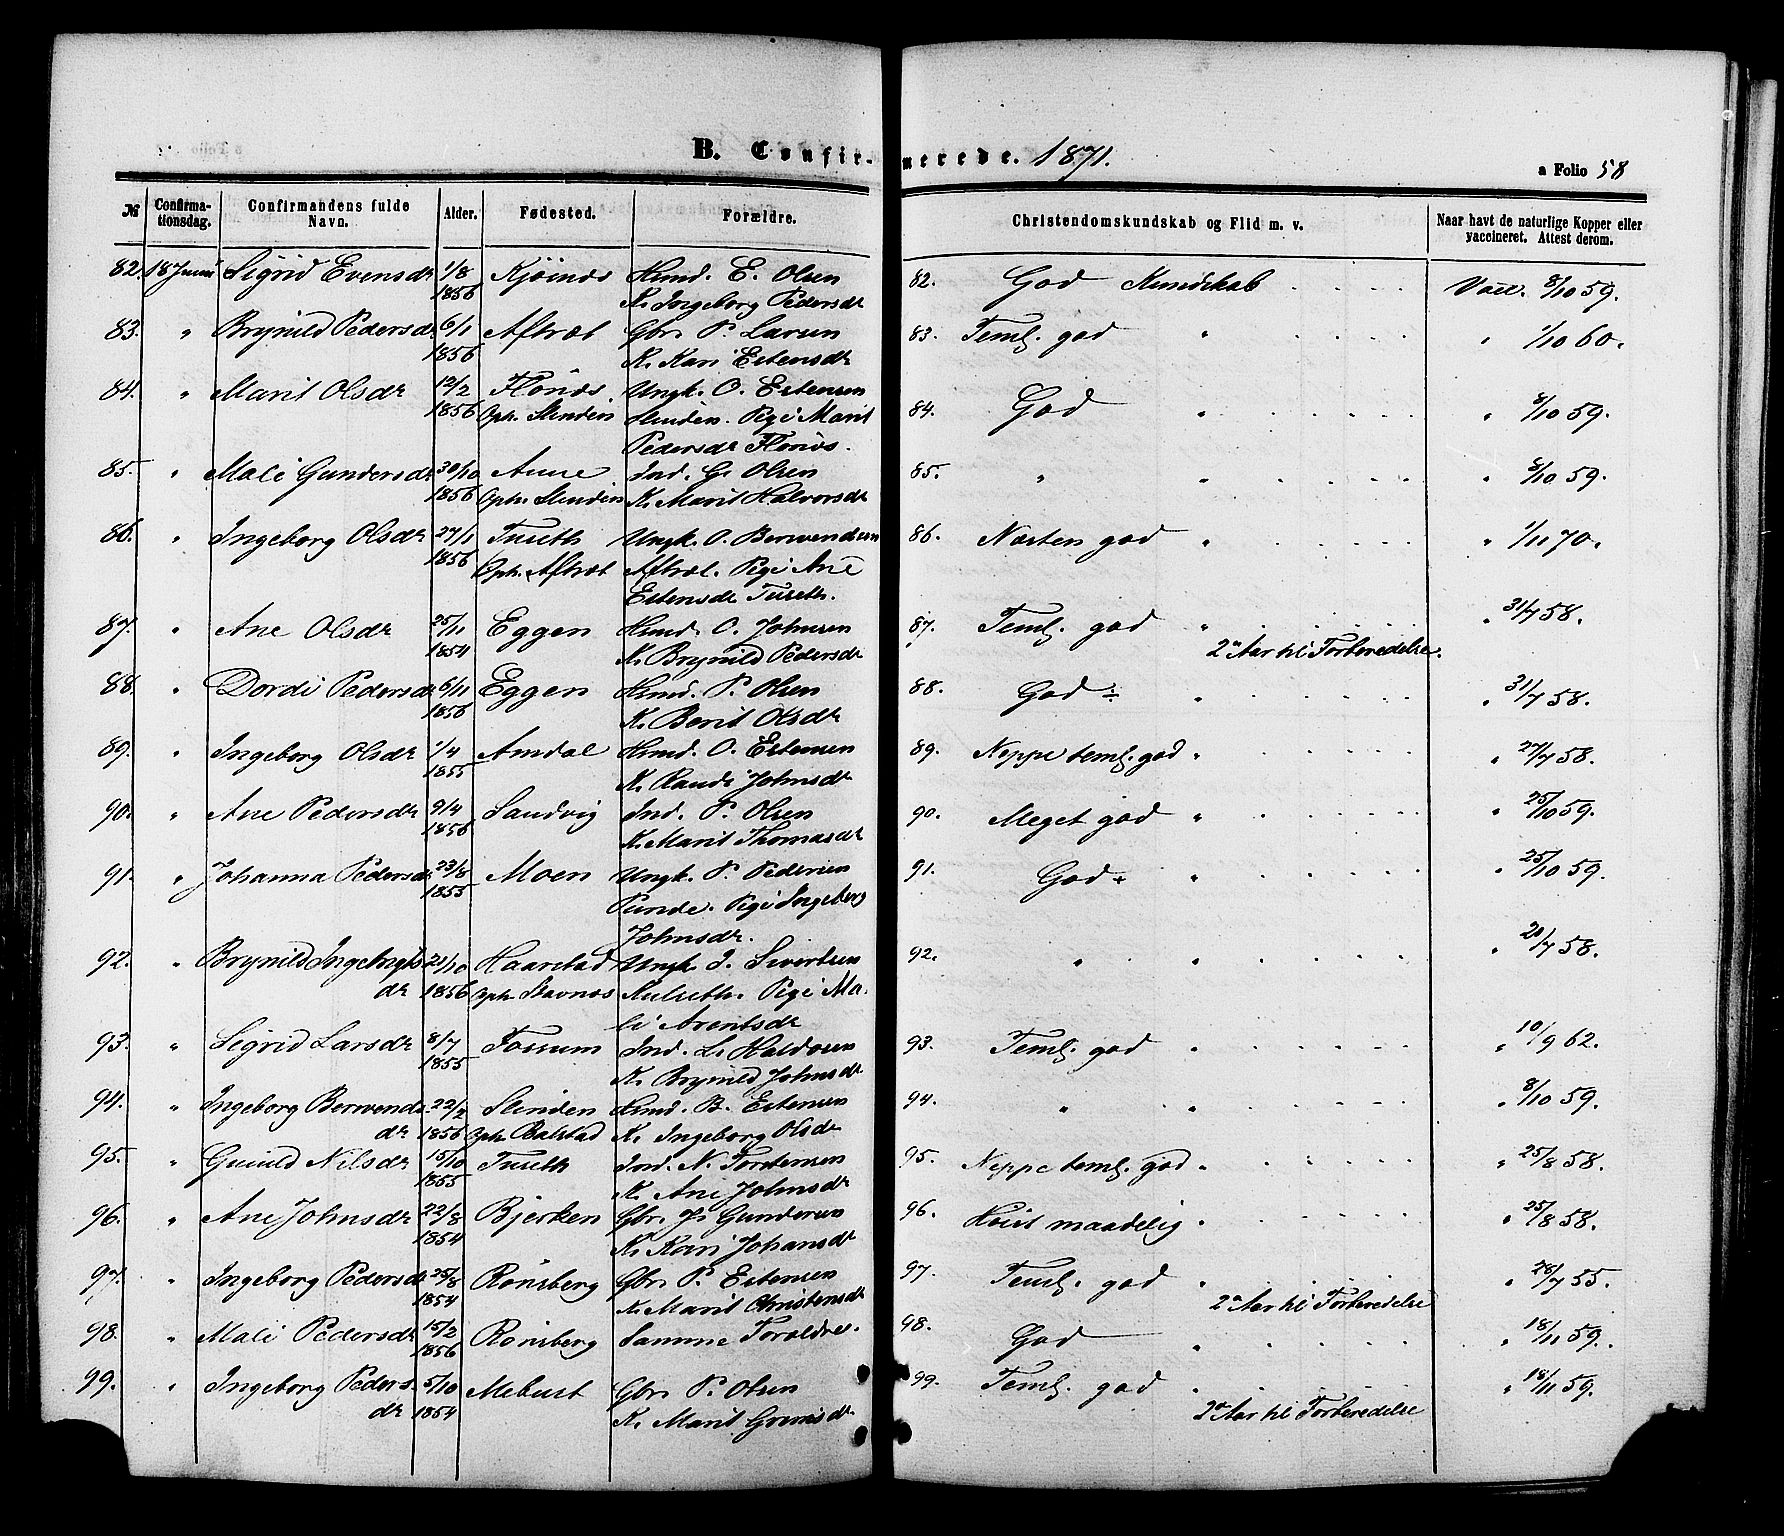 B. Confirmerede. 1871.
a Folio 58
№ Confirmationsdag. Confirmandens fulde Navn. Alder. Fødested. Forældre. Christendomskundskab og Flid m. v. Naar havt de naturlige Kopper eller vaccineret. Attest derom.
82. 18 Juni Sigrid Evensdr 1/8 Kjøsnæs Husmd. E. Olsen 82. God Kundskab Vacc. 8/10 59.
1856 K. Ingeborg Pedersdr
83. " Brynild Pedersdr 6/11 Aftræt Gbr. P. Larsen 83. Teml. god " " 1/10 60.
1856 K. Kari Estensdr
84. " Marit Olsdr 12/2 Flønæs Ungk. O. Estensen 84. God " " 8/10 59.
1856 Oph. Slinden Slinden. Pige Marit
Pedersdr Flønæs.
85. " Mali Gundersdr 30/10 Aune Ind. G. Olsen 85. " " " 8/10 59.
1856 Oph. Slinden K. Marit Halvorsdr
86. " Ingeborg Olsdr 27/1 Tuseth Ungk. O. Berwendsen 86. Næsten god " " 1/11 70.
1856 Oph. Aftræt Aftræt. Pige Ane
Estensdr Tuseth.
87. " Ane Olsdr 25/11 Eggen Husmd. O. Johnsen 87. Teml. god " " 31/7 58.
1854 K. Brynild Pedersdr 2 Aar til Forberedelse.
88. " Dordi Pedersdr 6/11 Eggen Husmd. P. Olsen 88. God ÷ " " 31/7 58.
1856 K. Berit Olsdr
89. " Ingeborg Olsdr 1/4 Amdal Husmd. O. Estensen 89. Neppe teml. god " " 27/7 58.
1855 K. Randi Johnsdr
90. " Ane Pedersdr 9/4 Sandvig Ind. P. Olsen 90. Meget god " " 25/10 59.
1856 K. Marit Thomasdr
91. " Johanna Pedersdr 23/8 Moen Ungk. P. Pedersen 91. God + " " 25/10 59.
1855 Pige Ingeborg
Johnsdr.
92. " Brynild Ingebrigts 21/10 Haarstad Ungk. I. Sivertsen 92. " " " 20/7 58.
dr 1856 Oph. Stavnæs Kulseth. Pige Ma-
li Arentsdr
93. " Sigrid Larsdr 8/7 Fossum Ind. L. Haldosen 93. Teml. god " " 10/9 62.
1855 K. Brynild Johnsdr
94. " Ingeborg Berwends 22/2 Slinden Husmd. B. Estensen 94. " " " 8/10 59.
dr 1856 Oph. Balstad K. Ingeborg Olsdr
95. " Gunild Nilsdr 15/10 Tuseth Ind. N. Torstensen 95. Neppe teml. god " " 25/8 58.
1855 K. Ane Johnsdr
96. " Ane Johnsdr 22/8 Bjerken Gbr. J. Gundersen 96. Høist maadelig " " 25/8 58.
1854 K. Kari Johansdr
97. " Ingeborg Pedersdr 25/8 Rønsberg Gbr. P. Estensen 97. Teml. god " " 28/7 55.
1854 K. Marit Christensdr 2 Aar til Forberedelse
98. " Mali Pedersdr 15/2 Rønsberg Samme Forældre. 98. God " " 18/11 59.
1856
99. " Ingeborg Peders 5/10 Mebust Gbr. P. Olsen 99. Teml. god " " 18/11 59.
dr 1854 K. Marit Grimsdr 2 Aar til Forberedelse